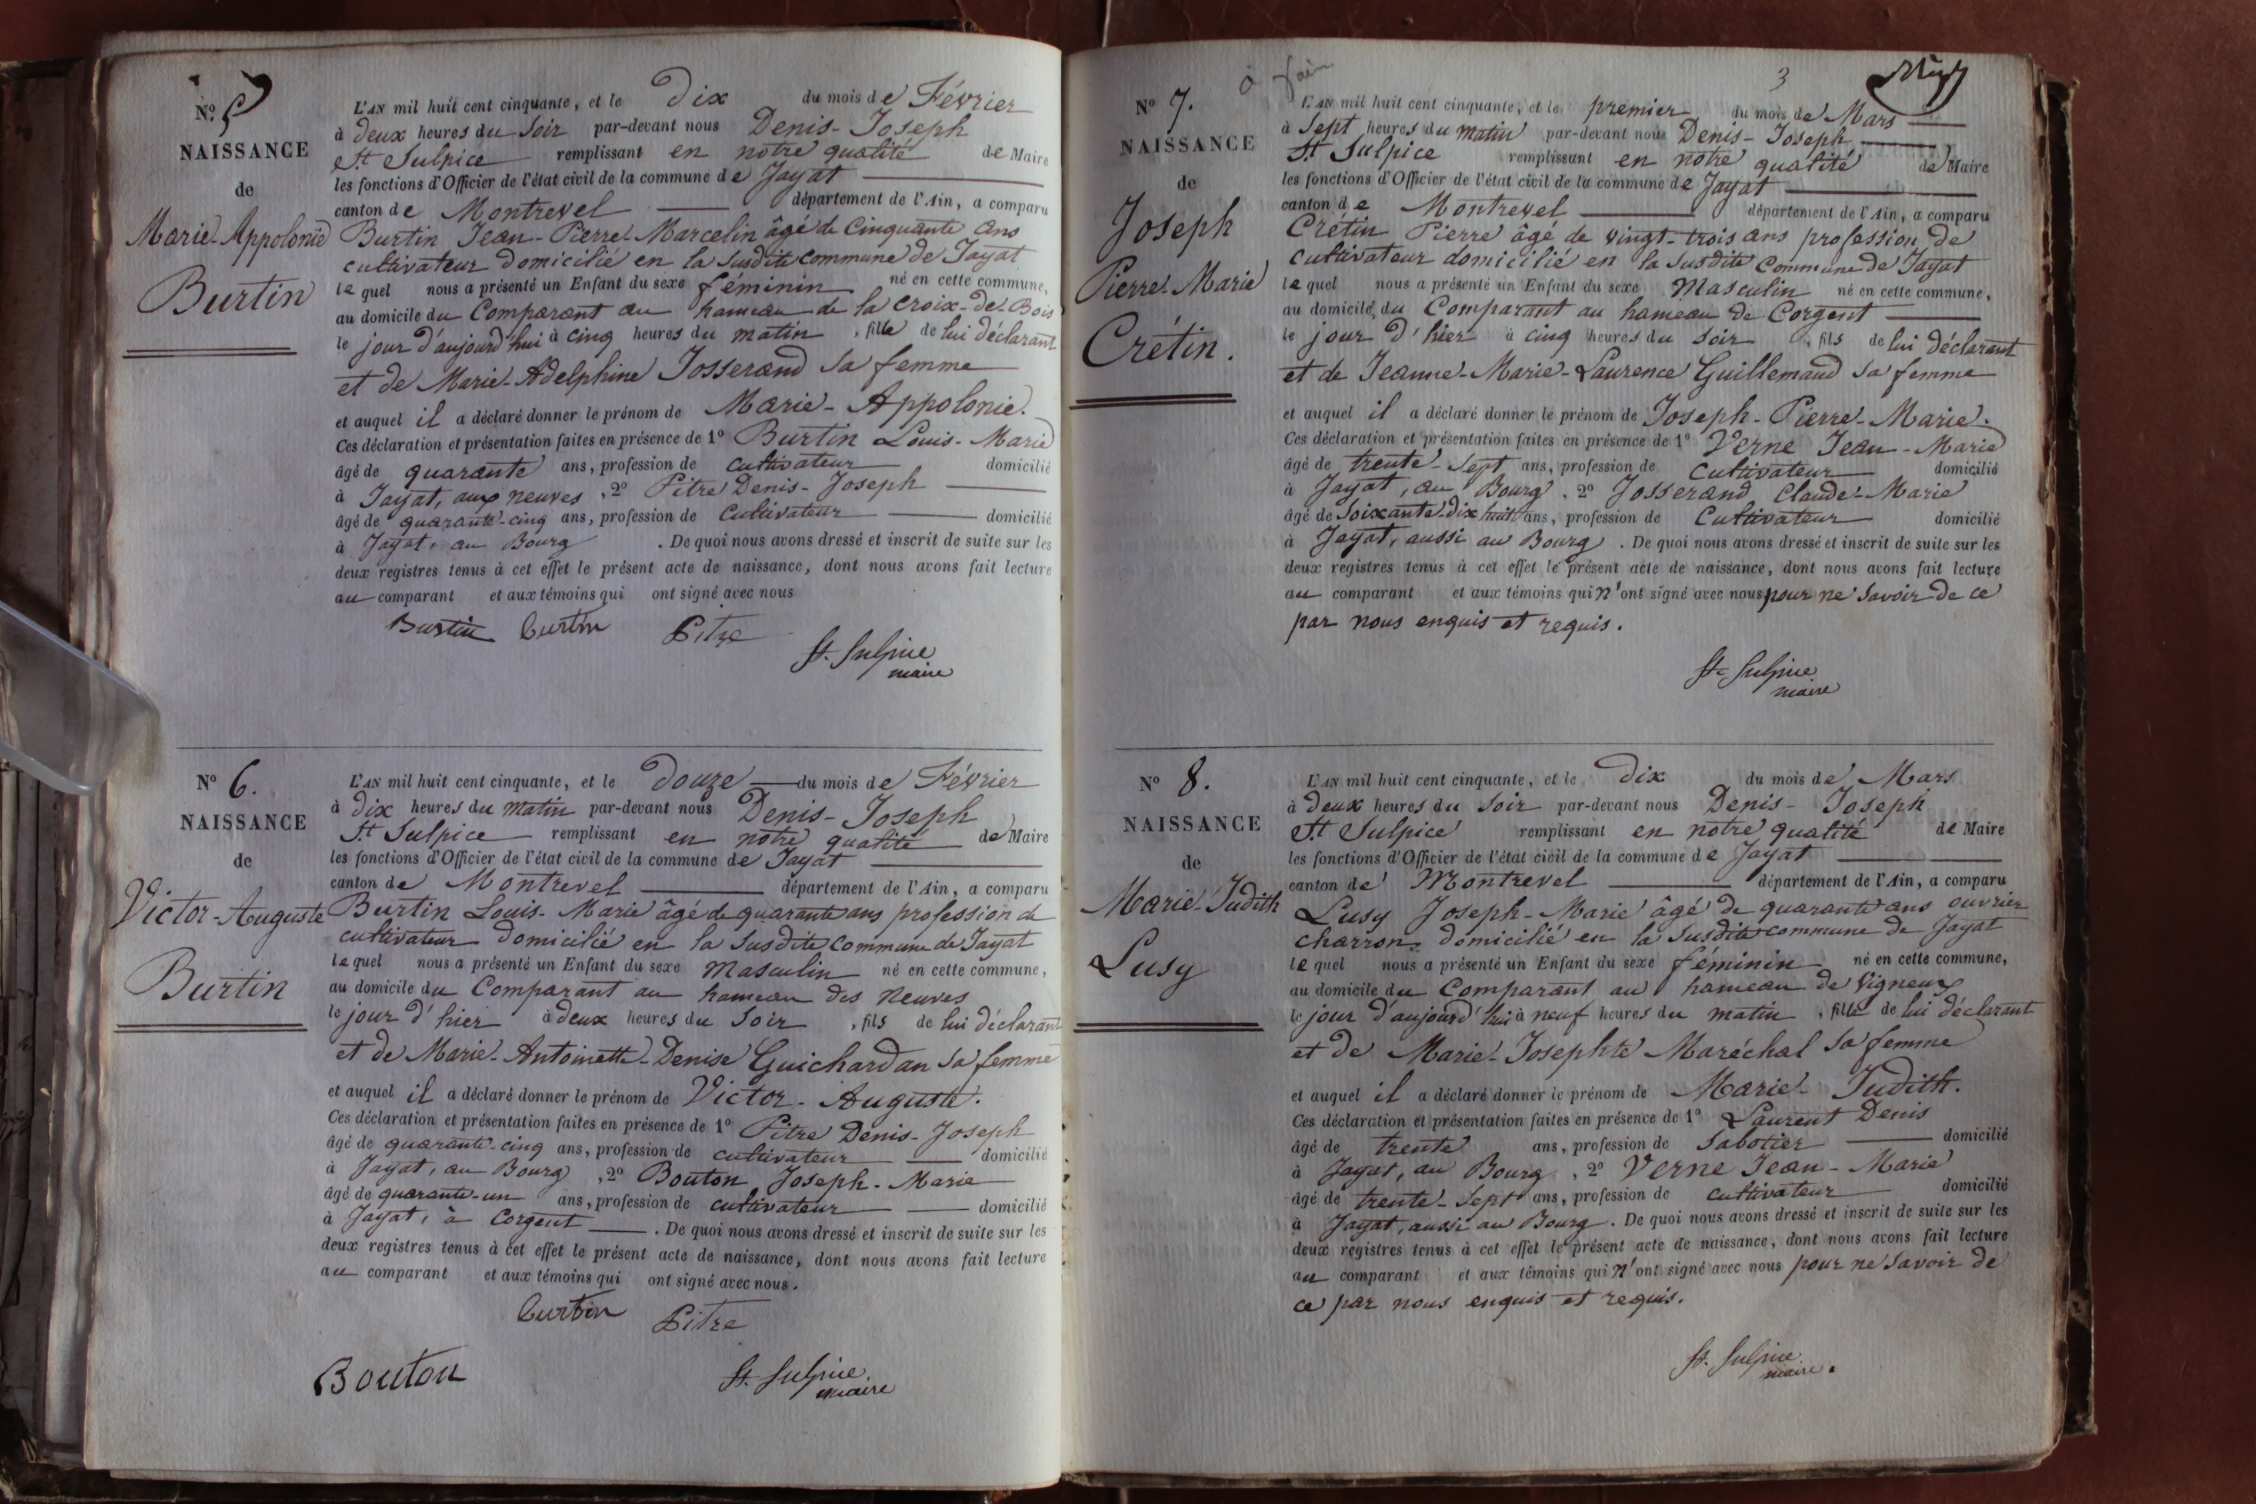 Nº 5
NAISSANCE
de
Marie-Appolonie
Burtin
L'AN mil huit cent cinquante, et le dix du mois de Février
à deux heures du soir par-devant nous Denis-Joseph
St Sulpice remplissant en notre qualité de Maire
les fonctions d'Officier de l'état civil de la commune de Jayat
canton de Montrevel département de l'Ain, a comparu
Burtin Jean-Pierre-Marcelin âgé de cinquante ans
cultivateur domicilié en la susdite commune de Jayat
lequel nous a présenté un Enfant du sexe féminin né en cette commune,
au domicile du Comparant au hameau de la Croix-de-Bois
le jour d'aujourd'hui à cinq heures du matin, fille de lui déclarant
et de Marie-Adelphine Josserand sa femme
et auquel il a déclaré donner le prénom de Marie-Appolonie.
Ces déclaration et présentation faites en présence de 1º Burtin Louis-Marie
âgé de quarante ans, profession de cultivateur domicilié
à Jayat, aux neuves, 2º Pitre Denis-Joseph
âgé de quarante-cinq ans, profession de Cultivateur domicilié
à Jayat, au Bourg. De quoi nous avons dressé et inscrit de suite sur les
deux registres tenus à cet effet le présent acte de naissance, dont nous avons fait lecture
au comparant et aux témoins qui ont signé avec nous
Burtin Burtin Pitre
St. Sulpice
maire
Nº 6.
NAISSANCE
de
Victor-Auguste
Burtin
L'AN mil huit cent cinquante, et le douze du mois de Février
à dix heures du matin par-devant nous Denis-Joseph
St Sulpice remplissant en notre qualité de Maire
les fonctions d'Officier de l'état civil de la commune de Jayat
canton de Montrevel département de l'Ain, a comparu
Burtin Louis-Marie âgé de quarante ans profession de
cultivateur domicilié en la susdite commune de Jayat
lequel nous a présenté un Enfant du sexe masculin né en cette commune,
au domicile du Comparant au hameau des neuves
le jour d'hier à deux heures du soir, fils de lui déclarant
et de Marie-Antoinette-Denise Guichardan sa femme
et auquel il a déclaré donner le prénom de Victor-Auguste.
Ces déclaration et présentation faites en présence de 1º Pitre Denis-Joseph
âgé de quarante-cinq ans, profession de cultivateur domicilié
à Jayat, au Bourg, 2º Bouton Joseph-Marie
âgé de quarante-un ans, profession de cultivateur domicilié
à Jayat, à Corgent. De quoi nous avons dressé et inscrit de suite sur les
deux registres tenus à cet effet le présent acte de naissance, dont nous avons fait lecture
au comparant et aux témoins qui ont signé avec nous.
Burtin Pitre
Bouton St. Sulpice
maire
3
Nº 7.
NAISSANCE
de
Joseph
Pierre-Marie
Crétin.
L'AN mil huit cent cinquante, et le premier du mois de Mars
à sept heures du matin par-devant nous Denis-Joseph
St Sulpice remplissant en notre qualité de Maire
les fonctions d'Officier de l'état civil de la commune de Jayat
canton de Montrevel département de l'Ain, a comparu
Crétin Pierre âgé de vingt-trois ans profession de
cultivateur domicilié en la susdite Commune de Jayat
lequel nous a présenté un Enfant du sexe Masculin né en cette commune,
au domicile du Comparant au hameau de Corgent
le jour d'hier à cinq heures du soir, fils de lui déclarant
et de Jeanne-Marie-Laurence Guillemaud sa femme
et auquel il a déclaré donner le prénom de Joseph-Pierre-Marie.
Ces déclaration et présentation faites en présence de 1º Verne Jean-Marie
âgé de trente-sept ans, profession de cultivateur domicilié
à Jayat, au Bourg, 2º Josserand Claude-Marie
âgé de Soixante-dix huit ans, profession de Cultivateur domicilié
à Jayat, aussi au Bourg. De quoi nous avons dressé et inscrit de suite sur les
deux registres tenus à cet effet le présent acte de naissance, dont nous avons fait lecture
au comparant et aux témoins qui n'ont signé avec nous pour ne savoir de ce
par nous enquis et requis.
St Sulpice
maire
Nº 8.
NAISSANCE
de
Marie-Judith
Lusy
L'AN mil huit cent cinquante, et le dix du mois de Mars
à deux heures du soir par-devant nous Denis-Joseph
St Sulpice remplissant en notre qualité de Maire
les fonctions d'Officier de l'état civil de la commune de Jayat
canton de Montrevel département de l'Ain, a comparu
Lusy Joseph-Marie âgé de quarante ans ouvrier
charron domicilié en la susdite commune de Jayat
lequel nous a présenté un Enfant du sexe féminin né en cette commune,
au domicile du Comparant au hameau de Vigneux
le jour d'aujourd'hui à neuf heures du matin, fille de lui déclarant
et de Marie-Josephte Maréchal sa femme
et auquel il a déclaré donner le prénom de Marie-Judith.
Ces déclaration et présentation faites en présence de 1º Laurent Denis
âgé de trente ans, profession de Sabotier domicilié
à Jayat, au Bourg, 2º Verne Jean-Marie
âgé de trente-sept ans, profession de cultivateur domicilié
à Jayat, aussi au Bourg. De quoi nous avons dressé et inscrit de suite sur les
deux registres tenus à cet effet le présent acte de naissance, dont nous avons fait lecture
au comparant et aux témoins qui n'ont signé avec nous pour ne savoir de
ce par nous enquis et requis.
St. Sulpice
maire.